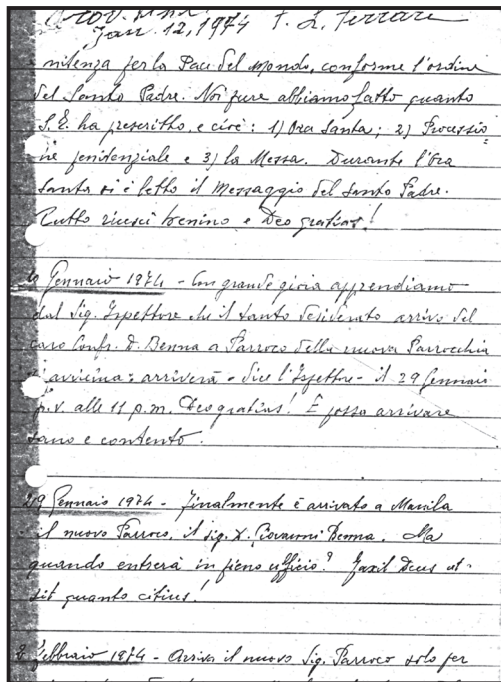 Jan. 12, 1974 F. L. Ferrari
nitenza per la Pace del Mondo, conforme l'ordine
del Santo Padre. Noi pure abbiamo fatto quanto
S. E. ha prescritto, e cioè: 1) Ora Santa; 2) Processio
ne penitenziale e 3) la Messa. Durante l'Ora
Santa si è letto il Messaggio del Santo Padre.
Tutto riuscì benino e Deo gratias!
Gennaio 1974 - Con grande gioia apprendiamo
dal Sig. Ispettore che il tanto desiderato arrivo del
caro Confr. D. Benna a Parroco della nuova Parrocchia
s'avvicina: arriverà - dice l'Ispettore - il 29 Gennaio
p.v. alle 11 p.m. Deo gratias! E possa arrivare
sano e contento.
29 Gennaio 1974 - Finalmente è arrivato a Manila
il nuovo Parroco, il sig. D. Giovanni Benna. Ma
quando entrerà in pieno ufficio? Faxit Deus ut
sit quanto citius!
Febbraio 1974 - Arriva il nuovo Sig. Parroco solo per